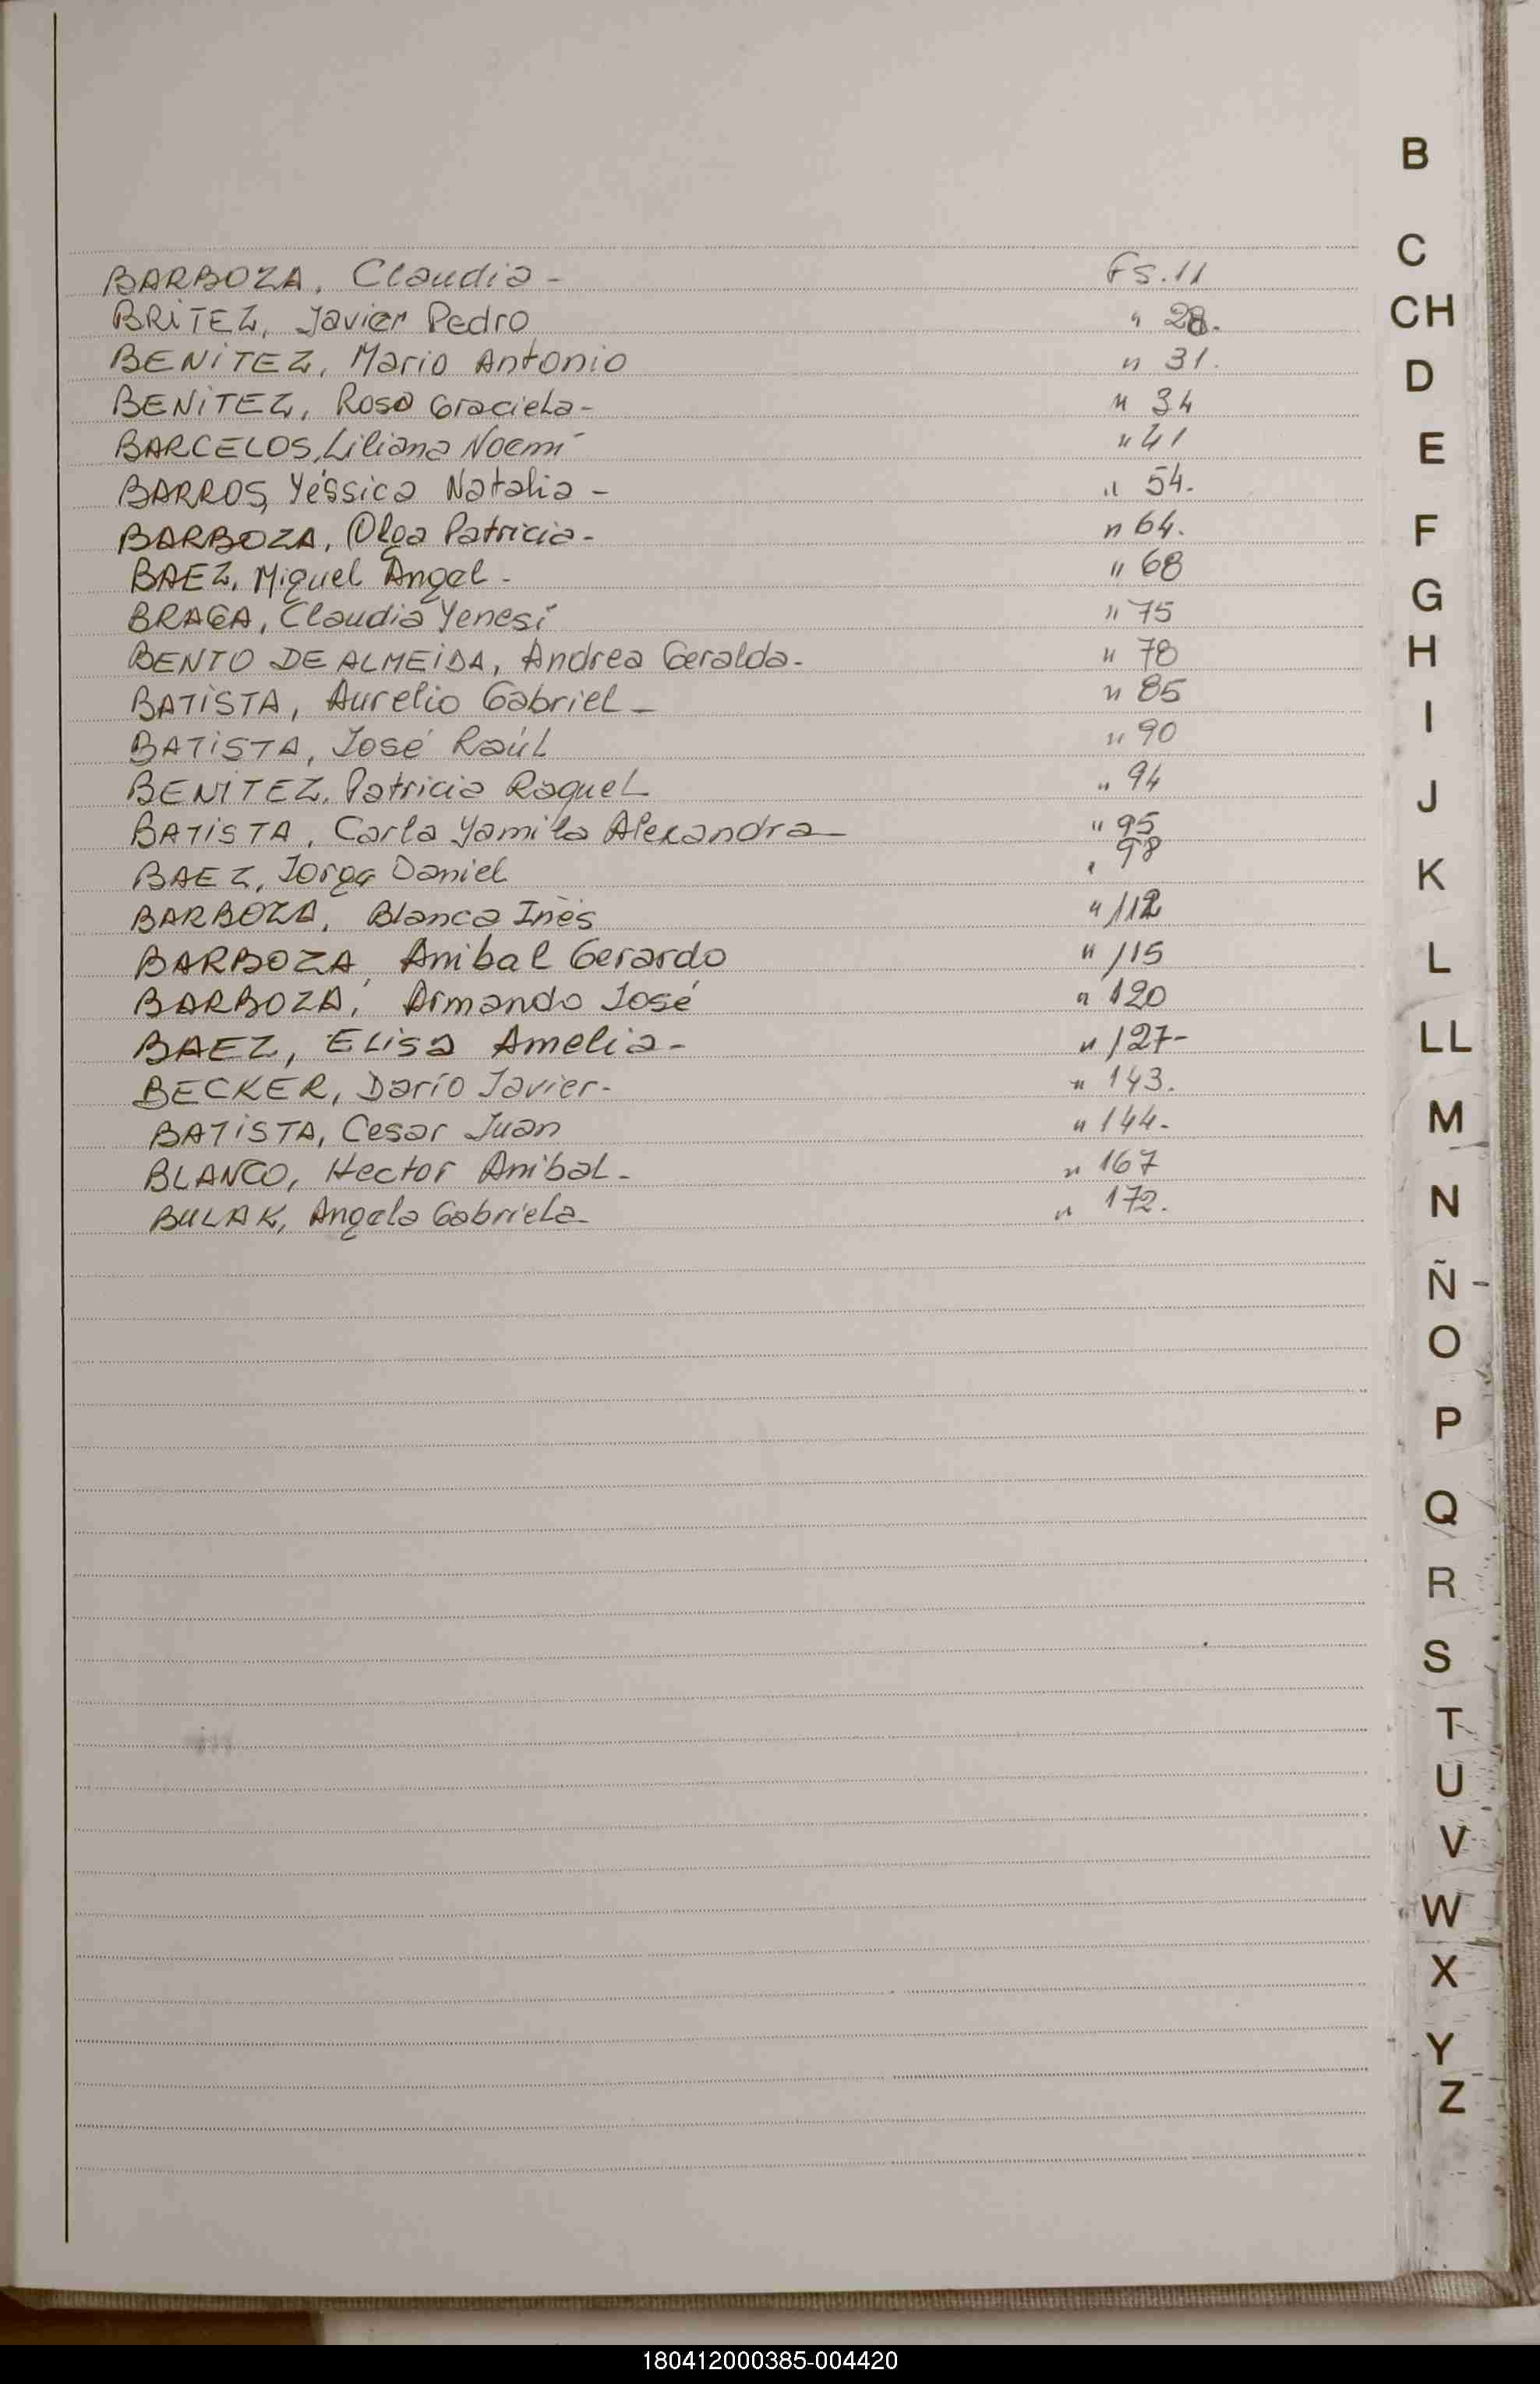 B
C
CH
D
E
F
G
H
I
J
K
L
LL
M
N
Ñ
O
P
Q
R
S
T
U
V
W
X
Y
Z
BARBOZA, Claudia - Fs. 11
BRITEZ, Javier Pedro " 28.
BENITEZ, Mario Antonio " 31.
BENITEZ, Rosa Graciela- " 34
BARCELOS, Liliana Noemí " 41
BARROS, Yéssica Natalia - " 54.
BARBOZA, Olga Patricia- " 64.
BAEZ, Miguel Angel - " 68
BRAGA, Claudia Yenesí " 75
BENTO DE ALMEIDA, Andrea Geralda- " 78
BATISTA, Aurelio Gabriel - " 85
BATISTA, José Raúl " 90
BENITEZ, Patricia Raquel " 94
BATISTA, Carla Yamila Alexandra - " 95
BAEZ, Jorge Daniel " 98
BARBOZA, Blanca Inés " 112
BARBOZA, Anibal Gerardo " 115
BARBOZA, Armando José " 120
BAEZ, Elisa Amelia- " 127-
BECKER, Darío Javier- " 143.
BATISTA, Cesar Juan " 144-
BLANCO, Hector Anibal- " 167
BULAK, Angela Gabriela " 172.
180412000385-004420